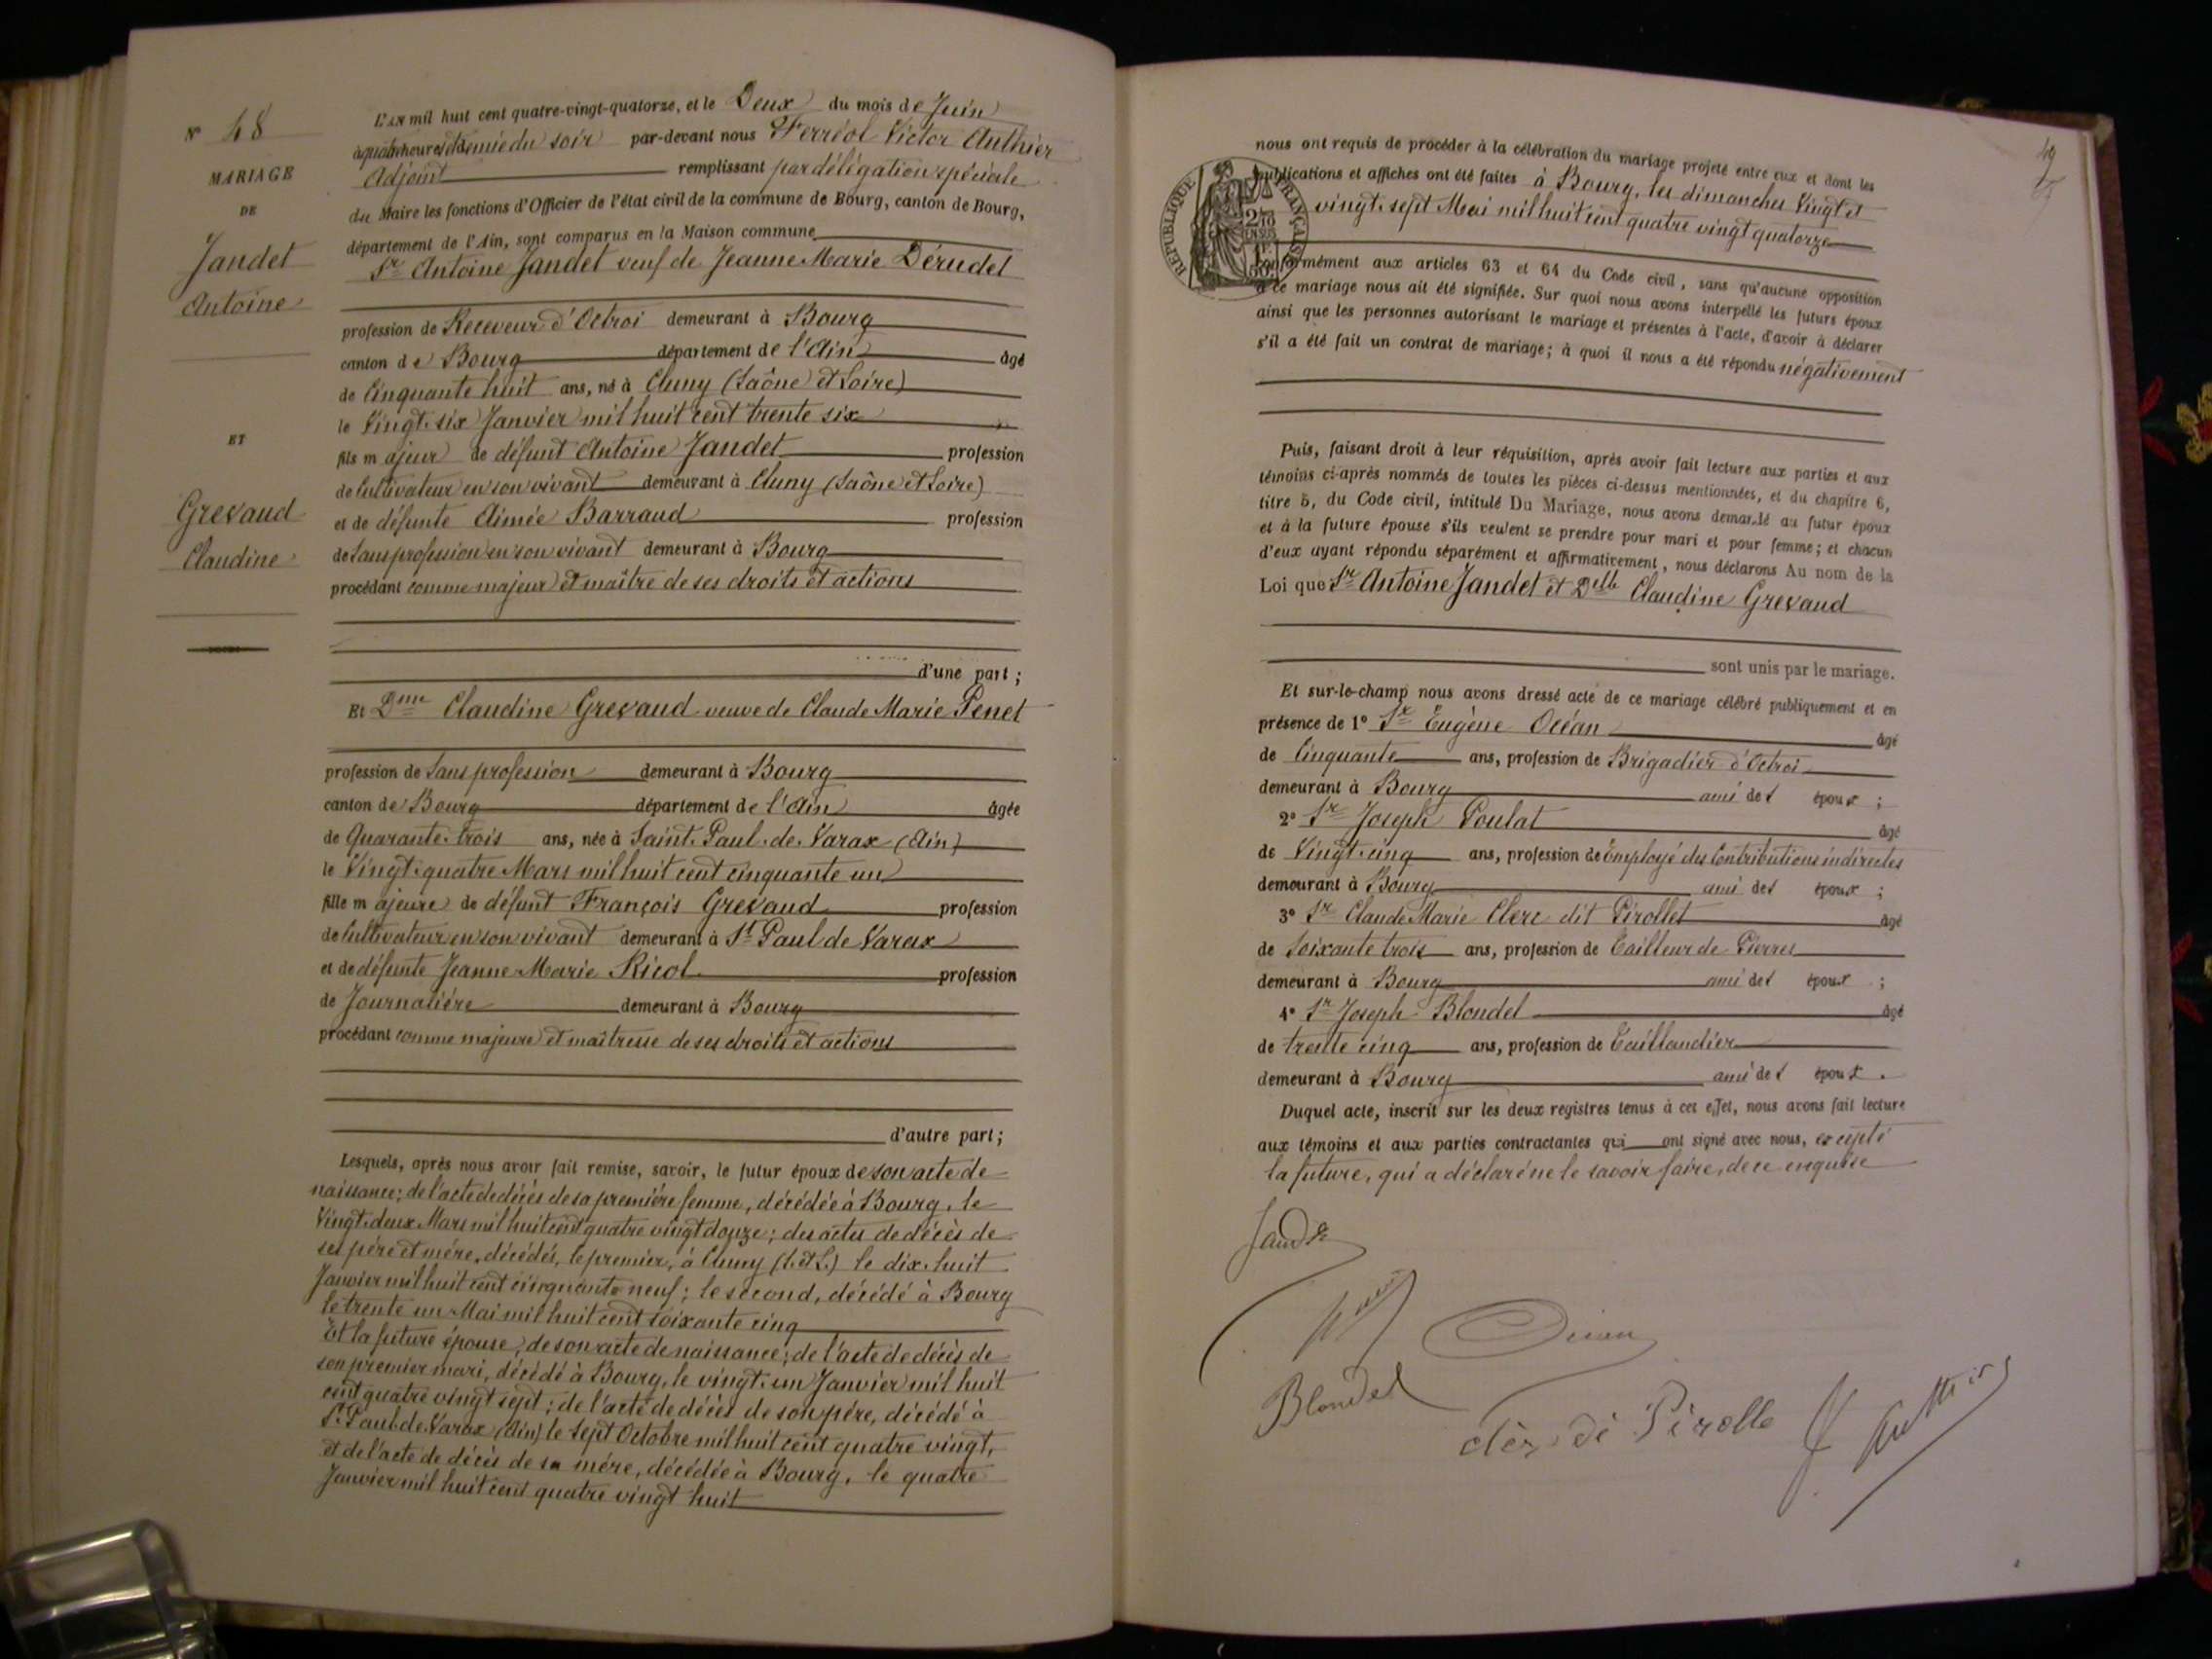 N° 48
MARIAGE
DE
Jandet
Antoine
ET
Grevaud
Claudine
L'an mil huit cent quatre-vingt-quatorze, et le Deux du mois de Juin
à quatre heures et demie du soir par-devant nous Ferréol Victor Authier
Adjoint remplissant par délégation spéciale
du Maire les fonctions d'Officier de l'état civil de la commune de Bourg, canton de Bourg,
département de l'Ain, sont comparus en la Maison commune
Sr Antoine Jandet veuf de Jeanne Marie Dérudet
profession de Receveur d'Octroi demeurant à Bourg
canton de Bourg département de l'Ain âgé
de Cinquante huit ans, né à Cluny (Saône et Loire)
le Vingt-six Janvier mil huit cent trente six
fils majeur de défunt Antoine Jandet profession
de Cultivateur en son vivant demeurant à Cluny (Saône et Loire)
et de défunte Aimée Barraud profession
de Sans profession en son vivant demeurant à Bourg
procédant comme majeur et maître de ses droits et actions
d'une part ;
Et Dme Claudine Grevaud veuve de Claude Marie Penet
profession de Sans profession demeurant à Bourg
canton de Bourg département de l'Ain âgée
de Quarante-trois ans, née à Saint-Paul-de-Varax (Ain)
le Vingt-quatre Mars mil huit cent cinquante un
fille majeure de défunt François Grevaud profession
de Cultivateur en son vivant demeurant à St Paul de Varax
et de défunte Jeanne Marie Ricol profession
de Journalière demeurant à Bourg
procédant comme majeure et maîtresse de ses droits et actions
d'autre part ;
Lesquels, après nous avoir fait remise, savoir, le futur époux de son acte de
naissance ; de l'acte de décès de sa première femme, décédée à Bourg, le
Vingt-deux Mars mil huit cent quatre vingt douze ; des actes de décès de
ses père et mère, décédés, le premier, à Cluny (S. et L.) le dix-huit
Janvier mil huit cent cinquante neuf ; le second, décédé à Bourg
le trente un Mai mil huit cent soixante cinq
Et la future épouse, de son acte de naissance ; de l'acte de décès de
son premier mari, décédé à Bourg, le vingt-un Janvier mil huit
cent quatre vingt sept ; de l'acte de décès de son père, décédé à
St Paul de Varax (Ain) le sept Octobre mil huit cent quatre vingt,
et de l'acte de décès de sa mère, décédée à Bourg, le quatre
Janvier mil huit cent quatre vingt huit
49
nous ont requis de procéder à la célébration du mariage projeté entre eux et dont les
publications et affiches ont été faites à Bourg, les dimanches Vingt et
vingt-sept Mai mil huit cent quatre vingt quatorze
RÉPUBLIQUE FRANÇAISE
conformément aux articles 63 et 64 du Code civil, sans qu'aucune opposition
à ce mariage nous ait été signifiée. Sur quoi nous avons interpellé les futurs époux
ainsi que les personnes autorisant le mariage et présentes à l'acte, d'avoir à déclarer
s'il a été fait un contrat de mariage ; à quoi il nous a été répondu négativement
Puis, faisant droit à leur réquisition, après avoir fait lecture aux parties et aux
témoins ci-après nommés de toutes les pièces ci-dessus mentionnées, et du chapitre 6,
titre 5, du Code civil, intitulé Du Mariage, nous avons demandé au futur époux
et à la future épouse s'ils veulent se prendre pour mari et pour femme ; et chacun
d'eux ayant répondu séparément et affirmativement, nous déclarons Au nom de la
Loi que Sr Antoine Jandet et Delle Claudine Grevaud
sont unis par le mariage.
Et sur-le-champ nous avons dressé acte de ce mariage célébré publiquement et en
présence de 1° Sr Eugène Océan âgé
de Cinquante ans, profession de Brigadier d'Octroi
demeurant à Bourg ami des époux ;
2° Sr Joseph Poulat âgé
de Vingt-cinq ans, profession de Employé des Contributions indirectes
demeurant à Bourg ami des époux ;
3° Sr Claude Marie Clerc dit Pirollet âgé
de Soixante trois ans, profession de Tailleur de Pierres
demeurant à Bourg ami des époux ;
4° Sr Joseph Blondel âgé
de trente cinq ans, profession de Taillandier
demeurant à Bourg ami des époux .
Duquel acte, inscrit sur les deux registres tenus à cet effet, nous avons fait lecture
aux témoins et aux parties contractantes qui ont signé avec nous, excepté
la future, qui a déclaré ne le savoir faire, de ce enquise
Blondel